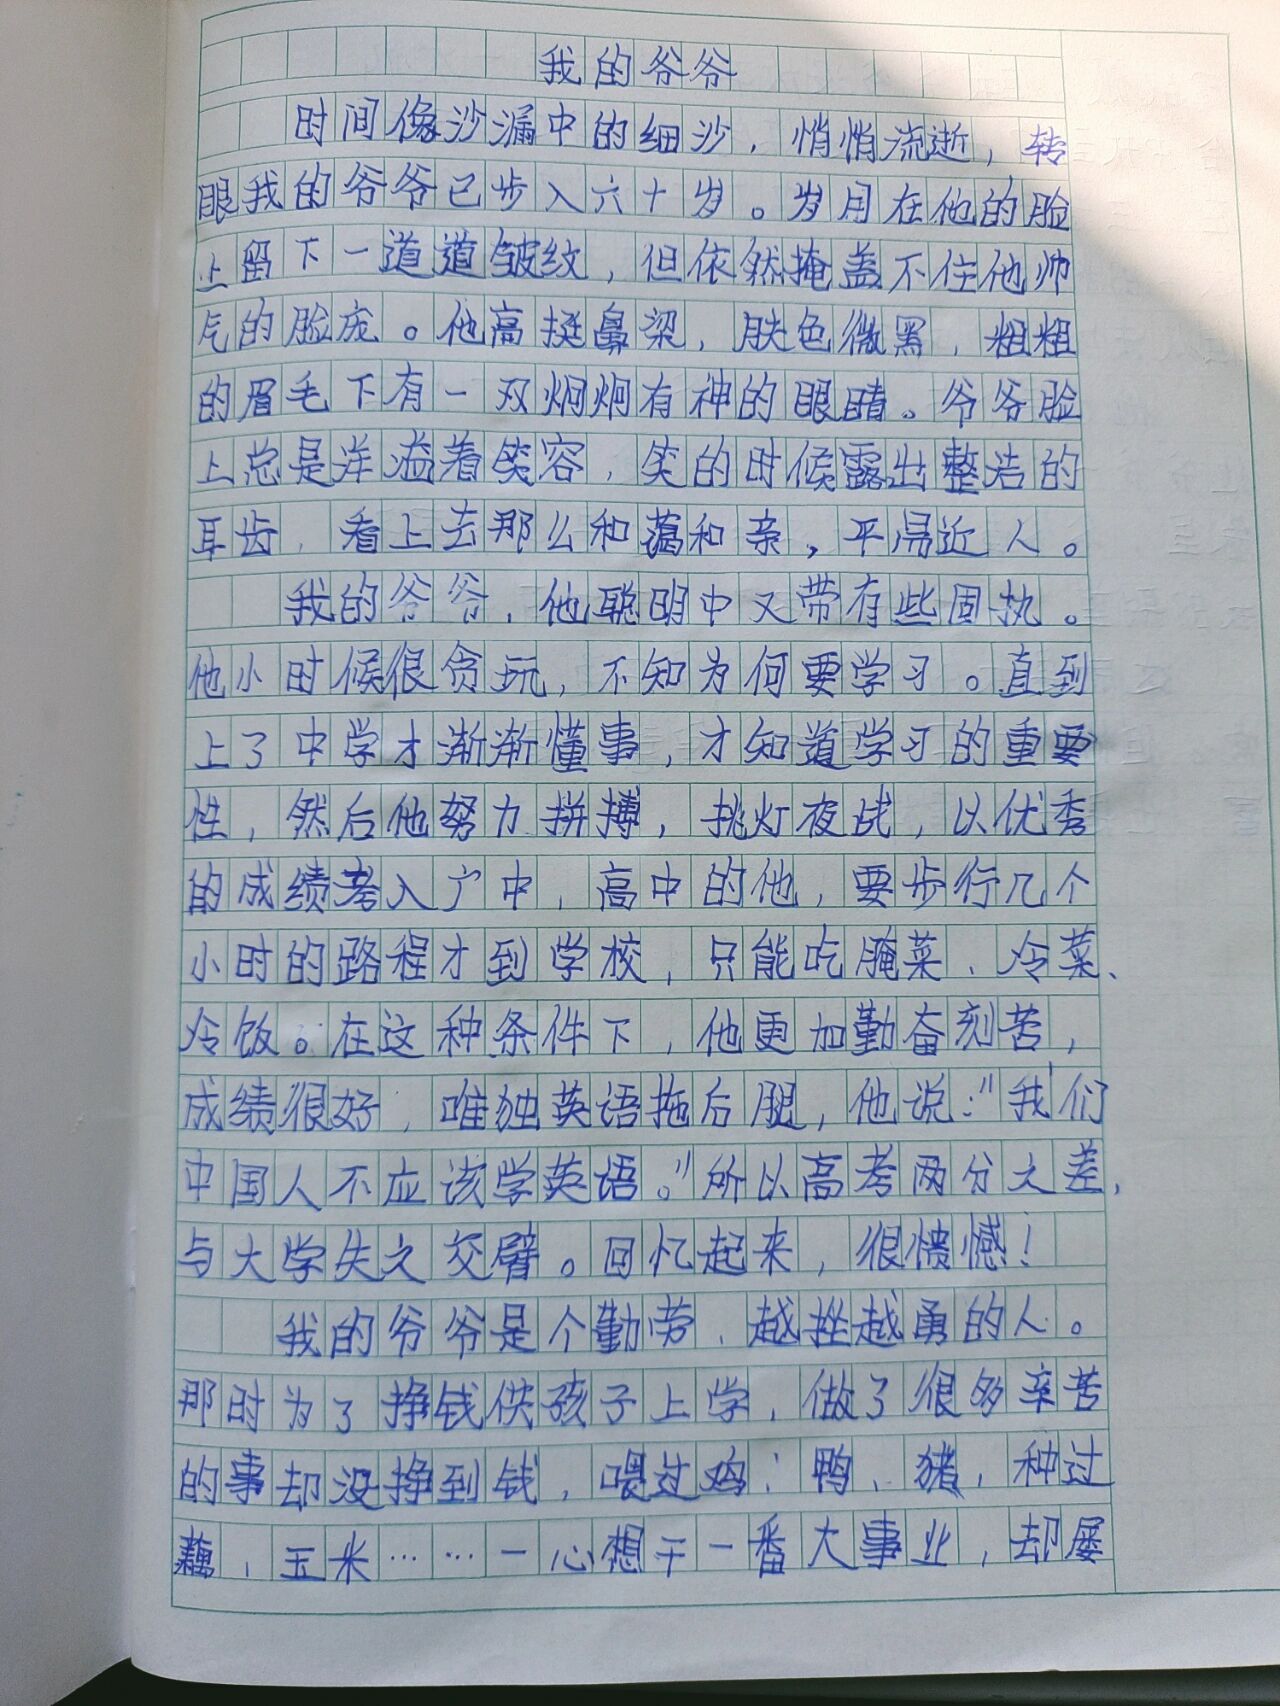 我的爷爷
时间像沙漏中的细沙，悄悄流逝，转
眼我的爷爷已步入六十岁。岁月在他的脸
上留下一道道皱纹，但依然掩盖不住他帅
气的脸庞。他高挺鼻梁，肤色微黑，粗粗
的眉毛下有一双炯炯有神的眼睛。爷爷脸
上总是洋溢着笑容，笑的时候露出整洁的
耳齿，看上去那么和蔼和亲，平易近人。
我的爷爷，他聪明中又带有些固执。
他小时候很贪玩，不知为何要学习。直到
上了中学才渐渐懂事，才知道学习的重要
性，然后他努力拼搏，挑灯夜战，以优秀
的成绩考入广中，高中的他，要步行几个
小时的路程才到学校，只能吃腌菜、冷菜、
冷饭。在这种条件下，他更加勤奋刻苦，
成绩很好，唯独英语拖后腿，他说："我们
中国人不应该学英语。"所以高考两分之差，
与大学失之交臂。回忆起来，很愦憾！
我的爷爷是个勤劳、越挫越勇的人。
那时为了挣钱供孩子上学，做了很多辛苦
的事却没挣到钱，喂过鸡、鸭、猪，种过
藕、玉米……一心想干一番大事业，却屡